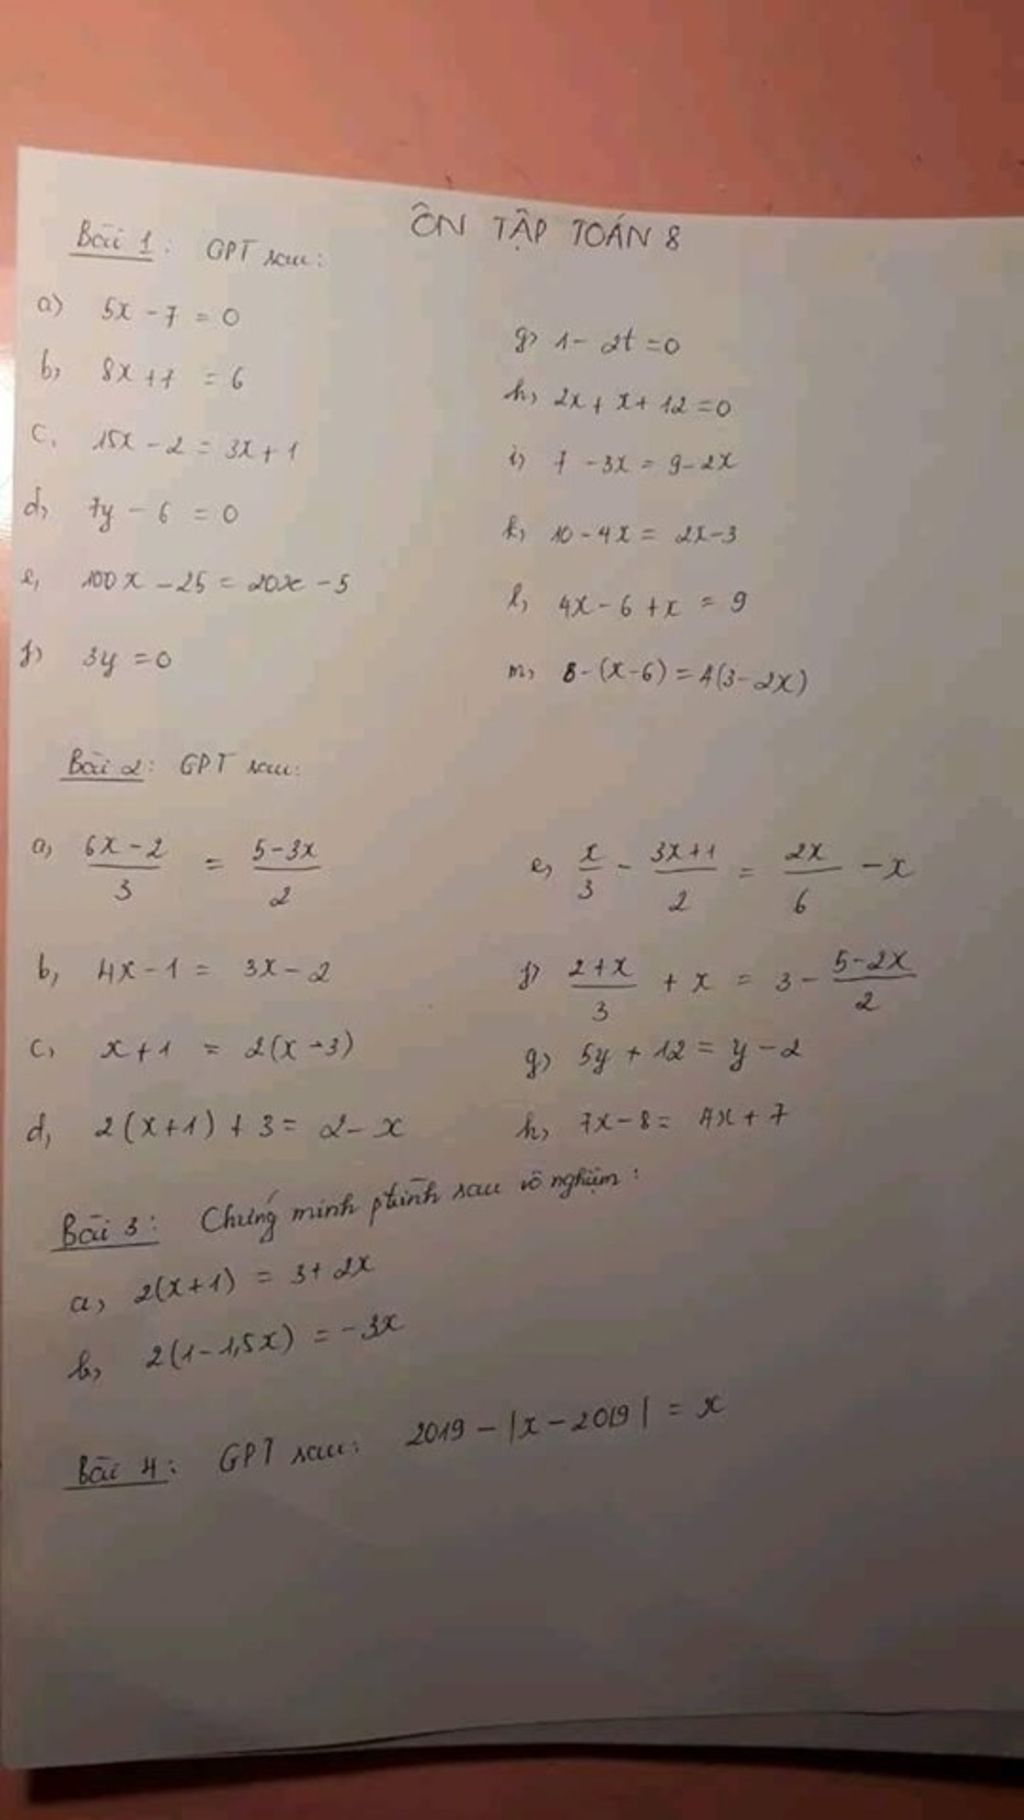 ÔN TẬP TOÁN 8
Bài 1: GPT sau:
a) 5x - 7 = 0
b, 8x + 7 = 6
c, 15x - 2 = 3x + 1
d, 7y - 6 = 0
e, 100x - 25 = 20x - 5
f) 3y = 0
g) 1 - 2t = 0
h, 2x + x + 12 = 0
i) 7 - 3x = 9 - 2x
k, 10 - 4x = 2x - 3
l, 4x - 6 + x = 9
m, 8 - (x - 6) = 4(3 - 2x)
Bài 2: GPT sau:
a, (6x - 2)/3 = (5 - 3x)/2
b, 4x - 1 = 3x - 2
c, x + 1 = 2(x - 3)
d, 2(x + 1) + 3 = 2 - x
e, x/3 - (3x + 1)/2 = 2x/6 - x
f) (2 + x)/3 + x = 3 - (5 - 2x)/2
g) 5y + 12 = y - 2
h, 7x - 8 = 4x + 7
Bài 3: Chứng minh ptrình sau vô nghiệm:
a, 2(x + 1) = 3 + 2x
b, 2(1 - 1,5x) = -3x
Bài 4: GPT sau: 2019 - |x - 2019| = x